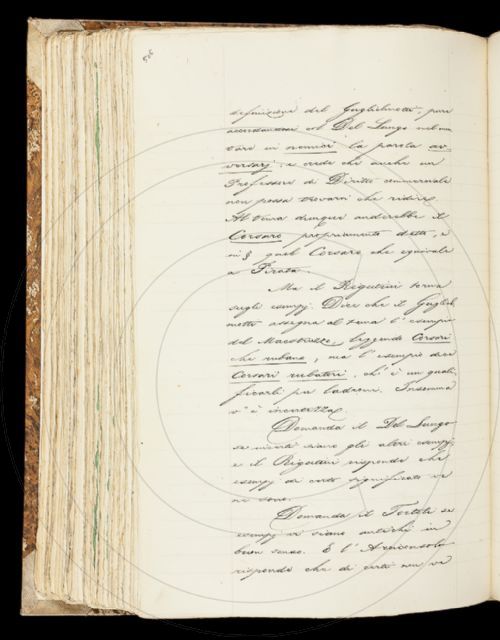 506
definizione del Guglielmotti, pure
accordandosi col Del Lungo nel mu
tare in nemici la parola av-
versarj, e crede che anche un
Professore di Diritto commerciale
non possa trovarvi che ridire.
Al tema dunque andrebbe il
Corsaro propriamente detto, e
in § quel Corsaro che equivale
a Pirata.
Ma il Rigutini torna
sugli esempj. Dice che il Gugliel
motti assegna al tema l'esempio
del Maestruzzo leggendo Corsari
che rubano, ma l'esempio dice
Corsari rubatori, ch'è un quali
ficarli per ladroni. Insomma
v'è incertezza.
Domanda il Del Lungo
se incerti siano gli altri esempj,
e il Rigutini risponde che
esempj di certo significato ve
ne sono.
Domanda il Tortoli se
esempj vi siano antichi in
buon senso. E l'Arciconsolo
risponde che di certi non ve